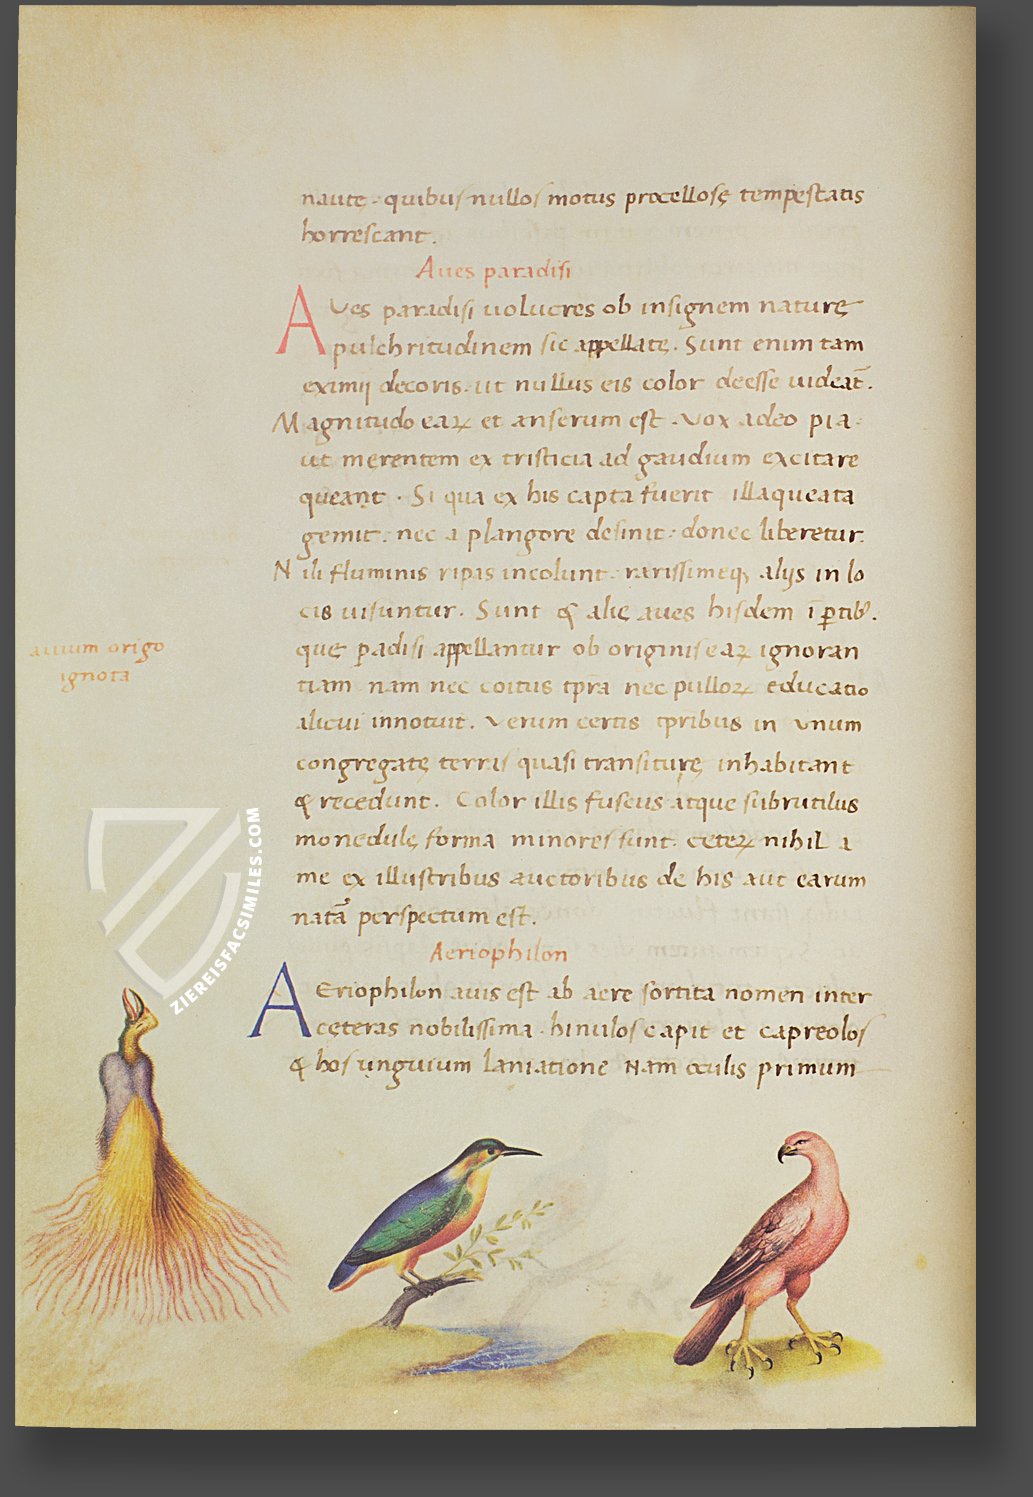 nautę · quibus nullos motus procellosę tempestatis
horrescant.
Aues paradisi
AVes paradisi uolucres ob insignem naturę
pulchritudinem sic appellatę. Sunt enim tam
eximij decoris. ut nullus eis color deesse uideat̄.
Magnitudo eaꝝ et anserum est. Vox adeo pia·
ut merentem ex tristicia ad gaudium excitare
queant · Si qua ex his capta fuerit illaqueata
gemit: nec a plangore desinit: donec liberetur.
Nili fluminis ripas incolunt: rarissimeqꝫ alijs in lo
cis uisuntur. Sunt & alię aues hisdem ī ꝑtibꝰ.
quę ꝑadisi appellantur ob originis eaꝝ ignoran
tiam nam nec coitus tp̄ra nec pulloꝝ educatio
alicui innotuit. Verum certis tp̄ribus in vnum
congregatę terris quasi transiturę inhabitant
& recedunt. Color illis fuscus atque subrutilus
monedulę forma minores sunt. ceteꝝ nihil a
me ex illustribus auctoribus de his aut earum
natā perspectum est.
auium origo
ignota
Aeriophilon
AEriophilon auis est ab aere sortita nomen inter
cęteras nobilissima · hinulos capit et capreolos
& hos unguium laniatione Nam oculis primum
ZIEREISFACSIMILES.COM